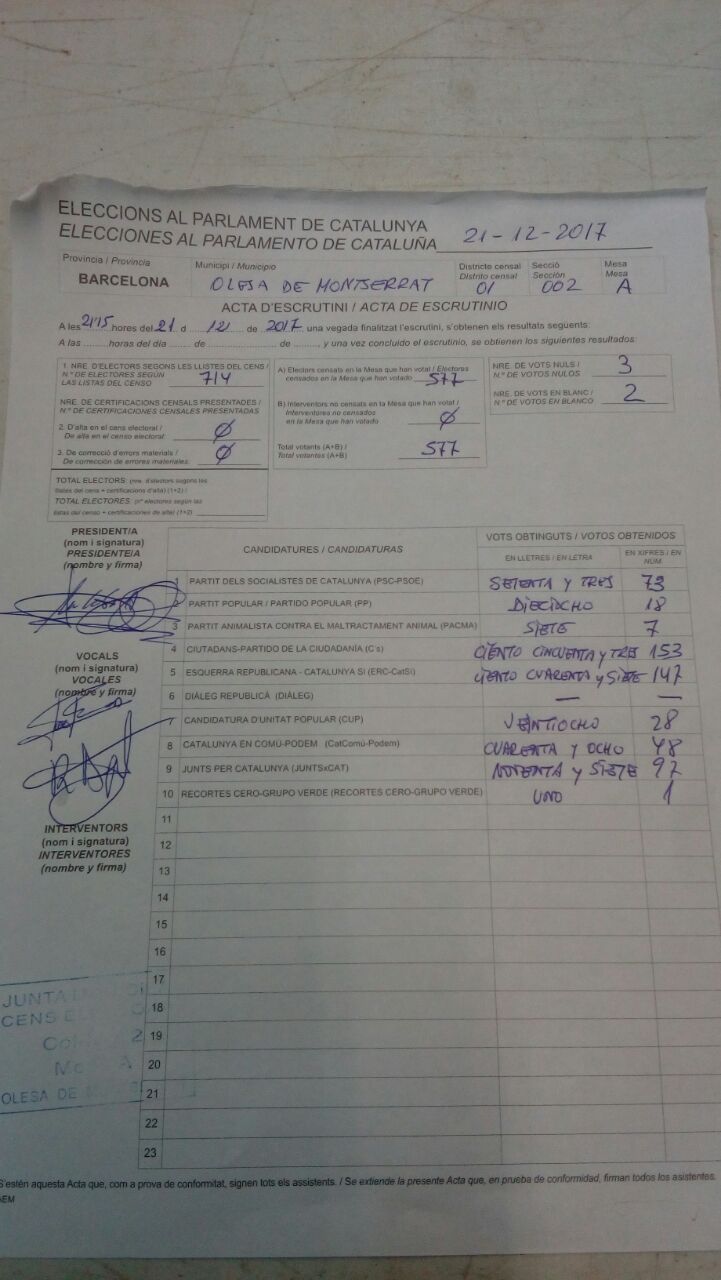 ELECCIONS AL PARLAMENT DE CATALUNYA
ELECCIONES AL PARLAMENTO DE CATALUÑA 21-12-2017
Província / Provincia Municipi / Municipio Districte censal Secció Mesa
Distrito censal Sección Mesa
BARCELONA OLESA DE MONTSERRAT 01 002 A
ACTA D'ESCRUTINI / ACTA DE ESCRUTINIO
A les 21'15 hores del 21 d 12 de 2017 una vegada finalitzat l'escrutini, s'obtenen els resultats següents:
A las ..........horas del día ...... de ............... de ........., y una vez concluido el escrutinio, se obtienen los siguientes resultados:
1. NRE. D'ELECTORS SEGONS LES LLISTES DEL CENS /
N.º DE ELECTORES SEGÚN
LAS LISTAS DEL CENSO 714
NRE. DE CERTIFICACIONS CENSALS PRESENTADES /
N.º DE CERTIFICACIONES CENSALES PRESENTADAS
2. D'alta en el cens electoral /
De alta en el censo electoral: Ø
3. De correcció d'errors materials /
De corrección de errores materiales: Ø
TOTAL ELECTORS: (nre. d'electors segons les
llistes del cens + certificacions d'alta) (1+2) /
TOTAL ELECTORES: (nº electores según las
listas del censo + certificaciones de alta) (1+2)
A) Electors censats en la Mesa que han votat / Electores
censados en la Mesa que han votado 577
B) Interventors no censats en la Mesa que han votat /
Interventores no censados
en la Mesa que han votado Ø
Total votants (A+B) /
Total votantes (A+B) 577
NRE. DE VOTS NULS /
N.º DE VOTOS NULOS 3
NRE. DE VOTS EN BLANC /
N.º DE VOTOS EN BLANCO 2
PRESIDENT/A
(nom i signatura)
PRESIDENTE/A
(nombre y firma)
VOCALS
(nom i signatura)
VOCALES
(nombre y firma)
INTERVENTORS
(nom i signatura)
INTERVENTORES
(nombre y firma)
CANDIDATURES / CANDIDATURAS VOTS OBTINGUTS / VOTOS OBTENIDOS
EN LLETRES / EN LETRA EN XIFRES / EN NUM
1 PARTIT DELS SOCIALISTES DE CATALUNYA (PSC-PSOE) SETENTA Y TRES 73
2 PARTIT POPULAR / PARTIDO POPULAR (PP) DIECIOCHO 18
3 PARTIT ANIMALISTA CONTRA EL MALTRACTAMENT ANIMAL (PACMA) SIETE 7
4 CIUTADANS-PARTIDO DE LA CIUDADANÍA (C's) CIENTO CINCUENTA y TRES 153
5 ESQUERRA REPUBLICANA - CATALUNYA SÍ (ERC-CatSí) CIENTO CUARENTA y SIETE 147
6 DIÀLEG REPUBLICÀ (DIÀLEG) — —
7 CANDIDATURA D'UNITAT POPULAR (CUP) VEINTIOCHO 28
8 CATALUNYA EN COMÚ-PODEM (CatComú-Podem) CUARENTA Y OCHO 48
9 JUNTS PER CATALUNYA (JUNTSxCAT) NOVENTA y SIETE 97
10 RECORTES CERO-GRUPO VERDE (RECORTES CERO-GRUPO VERDE) UNO 1
11
12
13
14
15
16
17
18
19
20
21
22
23
JUNTA
CENS
2
A
OLESA DE
S'estén aquesta Acta que, com a prova de conformitat, signen tots els assistents. / Se extiende la presente Acta que, en prueba de conformidad, firman todos los asistentes.